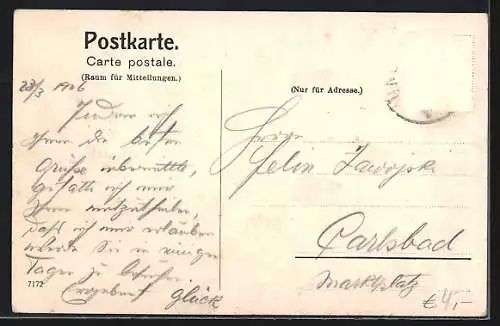 Postkarte.
Carte postale.
(Raum für Mitteilungen.)
23/3 1906
Indem ich
Ihnen die besten
Grüße übermittle,
gestatte ich mir
Ihnen mitzutheilen,
daß ich mir erlauben
werde Sie in einigen
Tagen zu besuchen.
Ergebenst Glück
7172
(Nur für Adresse.)
Herrn
Felix
Carlsbad
Marktplatz
€ 4,-